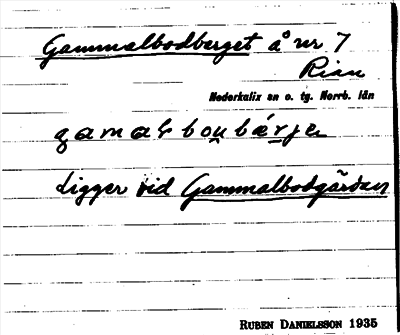 Gammalbodberget å nr 7
Rian
Nederkalix sn o. tg. Norrb. län
Ligger vid Gammalbodgärdan
RUBEN DANIELSSON 1935